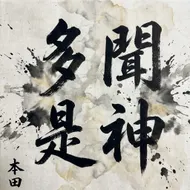 聞神
多是
本田